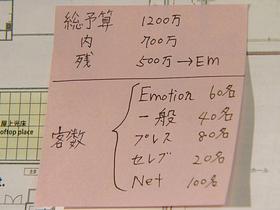 総予算 1200万
内 700万
残 500万→Em
客数
Emotion 60名
一般 40名
プレス 80名
セレブ 20名
Net 100名
屋上光床
oftop place